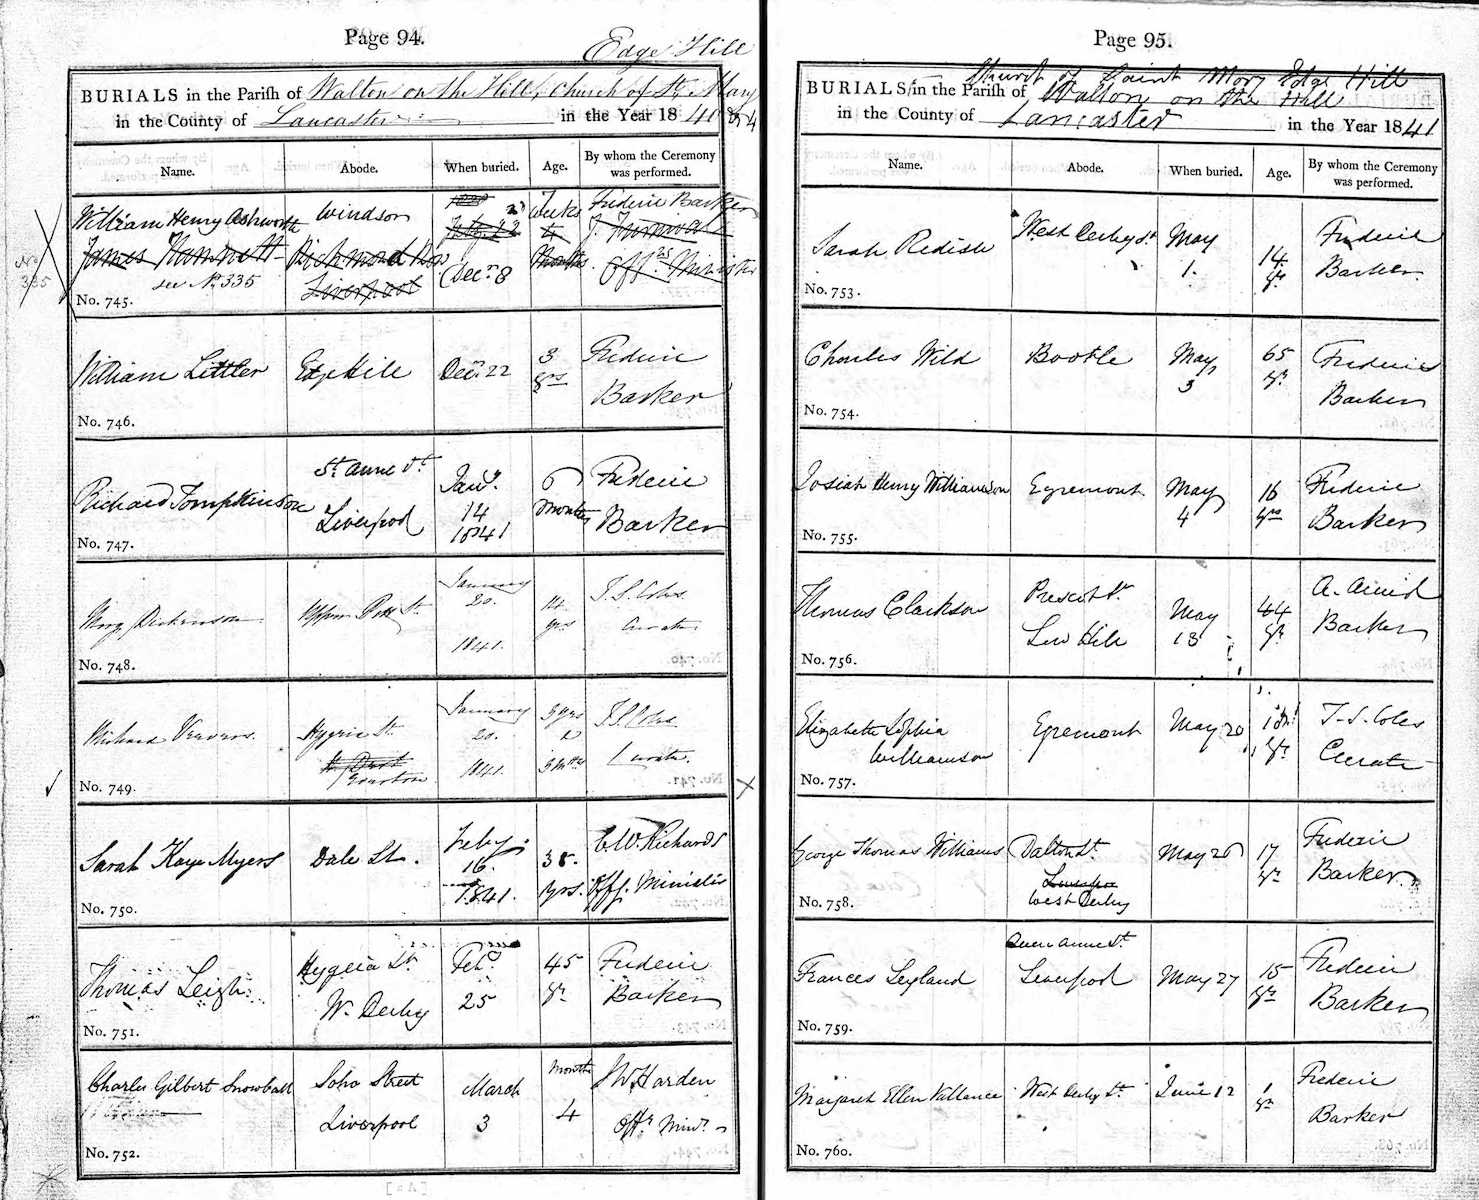 Page 94.
Edge Hill
BURIALS in the Parish of Walton on the Hill, Church of St Mary
in the County of Lancaster in the Year 1840 & 41
Name.
Abode.
When buried.
Age.
By whom the Ceremony
was performed.
William Henry Ashworth
James Hamnett
see No 335
No
335
No. 745.
Windsor
Richmond Row
Liverpool
Decr 8
weeks
Months
Frederic Barker
J. Furnival
Offg Minister
No. 746.
William Littler
Edge Hill
Decr 22
3
yrs
Frederic
Barker
No. 747.
Richard Tompkinson
St Anne St
Liverpool
Jany
14
1841
6
months
Frederic
Barker
No. 748.
Mary Dickinson
Upper St.
January
20.
1841.
14
yrs
T. S. Coles
Curate
No. 749.
Richard
Hygeia St.
Everton
January
20.
1841.
3 yrs
3 mths
T. S. Coles
Curate
No. 750.
Sarah Kaye Myers
Dale St.
Feby
16.
1841.
yrs.
C W. Richards
Offg. Minister
No. 751.
Thomas Leigh
Hygeia St
W. Derby
Feby
25
45
yr
Frederic
Barker
No. 752.
Charles Gilbert Snowball
Soho Street
Liverpool
March
3
Months
4
J W Harden
Offg Minr
Page 95.
Church of Saint Mary Edge Hill
BURIALS in the Parish of Walton on the Hill
in the County of Lancaster in the Year 1841
Name.
Abode.
When buried.
Age.
By whom the Ceremony
was performed.
Sarah Redish
No. 753.
West Derby St
May
1.
14
yr
Frederic
Barker
Charles Wild
No. 754.
Bootle
May
3
65
yr
Frederic
Barker
Josiah Henry Williamson
No. 755.
Egremont
May
4
16
yrs
Frederic
Barker
Thomas Clarkson
No. 756.
Prescot St
Low Hill
May
13
44
yr
Barker
Elizabeth Sophia
Williamson
No. 757.
Egremont
May 20
yr
T. S. Coles
Curate
George Thomas Williams
No. 758.
Dalton St.
West Derby
May 26
17
yr
Frederic
Barker
Frances Leyland
No. 759.
Queen Anne St
Liverpool
May 27
15
yr
Frederic
Barker
Margaret Ellen Vallance
No. 760.
West Derby St.
June 12
1
yr
Frederic
Barker